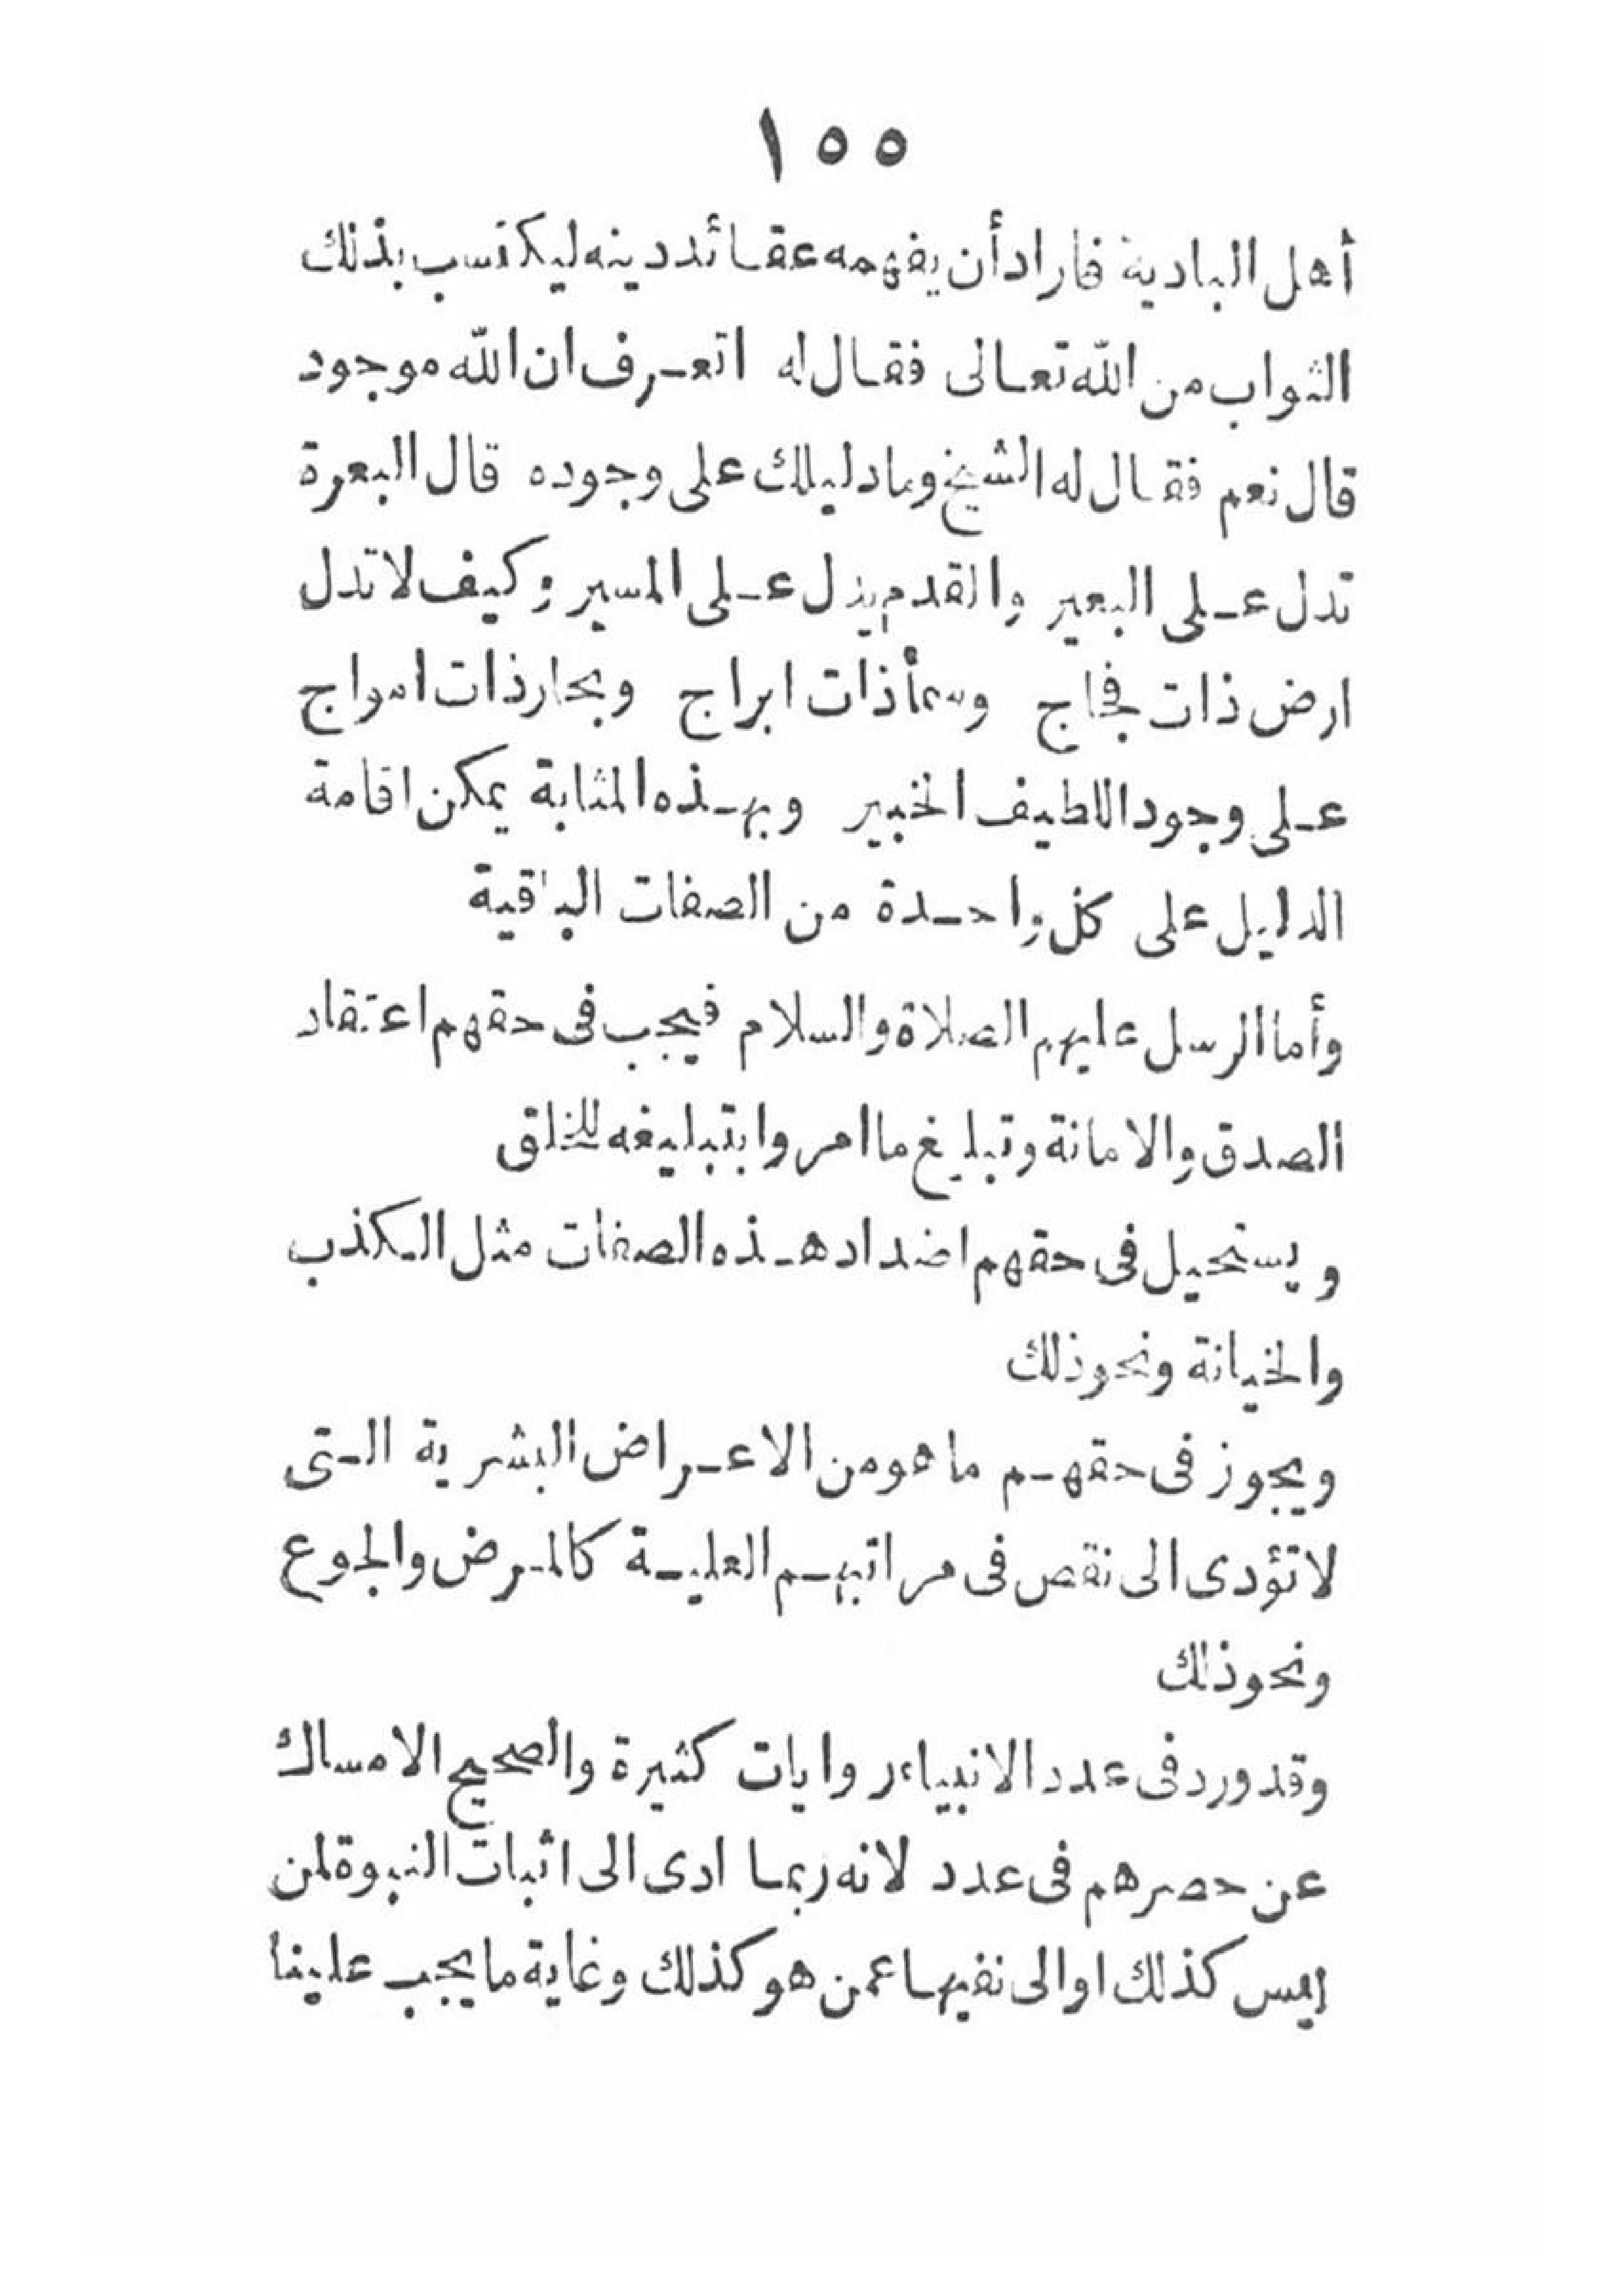 ١٥٥
أهل البادية فاراد أن يفهمه عقائد دينه ليكتسب بذلك
الثواب من الله تعالى فقال له اتعرف ان الله موجود
قال نعم فقال له الشيخ وما دليلك على وجوده قال البعرة
تدل على البعير والقدم يدل على المسير وكيف لا تدل
ارض ذات فجاج وسمأ ذات ابراج وبحار ذات امواج
على وجود اللطيف الخبير وبهذه المثابة يمكن اقامة
الدليل على كل واحدة من الصفات الباقية
وأما الرسل عليهم الصلاة والسلام فيجب فى حقهم اعتقاد
الصدق والامانة وتبليغ ما امروا بتبليغه للخلق
ويستحيل فى حقهم اضداد هذه الصفات مثل الكذب
والخيانة ونحو ذلك
ويجوز فى حقهم ما هو من الاعراض البشرية التى
لا تؤدى الى نقص فى مراتبهم العلية كالمرض والجوع
ونحو ذلك
وقد ورد فى عدد الانبياء روايات كثيرة والصحيح الامساك
عن حصرهم فى عدد لانه ربما ادى الى اثبات النبوة لمن
ليس كذلك او الى نفيها عمن هو كذلك وغاية ما يجب علينا